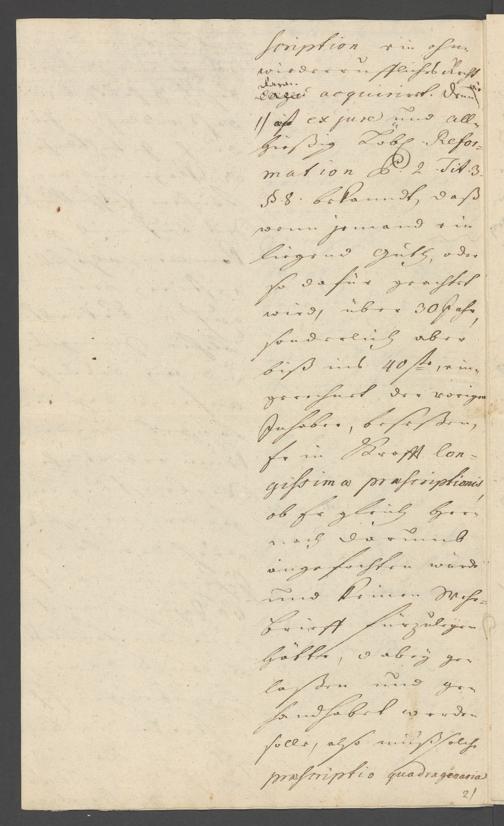 scription ein ohn=
wiederrufflichs Recht
daran
dazu acquirirt. Denn
1/ ist ex jure und all=
hießig Löbl. Refor=
mation P. 2. Tit. 3.
§. 8. bekanndt, daß
wenn jemand ein
liegend Guth, oder
so dafür geachtet
wird, über 30 Jahr,
sonderlich aber
biß ins 40ste, ein=
gerechnet der vorigen
Inhaber, beseßen,
Er in Krafft lon=
gissimæ præscriptionis,
ob Er gleich her=
nach darumb
angefochten würde
und keinen Wehr=
brieff fürzulegen
hätte, dabey ge=
laßen und ge=
handhabet werden
solle, also muß solche
præscriptio quadragenaria
2/